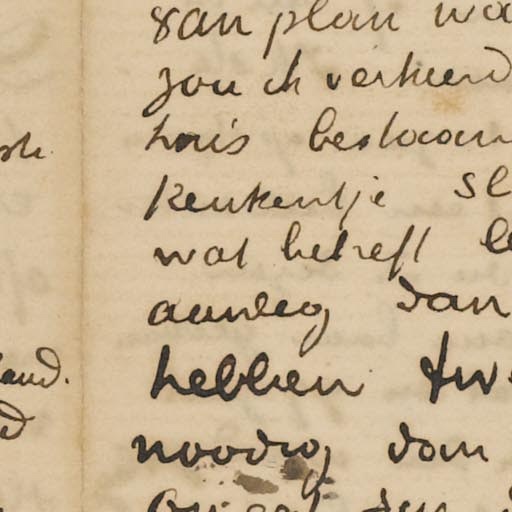 van plan wa
zou ik verkeerd
huis bestaan
keukentje sl
wat betreft le
aanleg dan
hebben tw
noodig dan
land.
d